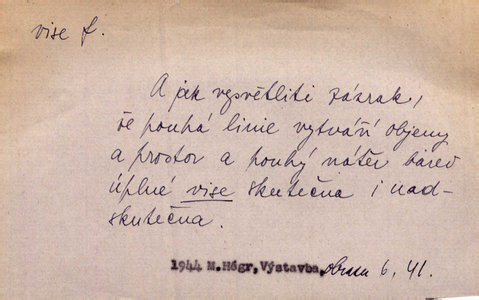 vise f.
A jak vysvětliti zázrak,
že pouhá linie vytváří objemy
a prostor a pouhý nátěr barev
úplné vise skutečna i nad-
skutečna.
1944 M.Hégr, Výstavba, 6, 41.